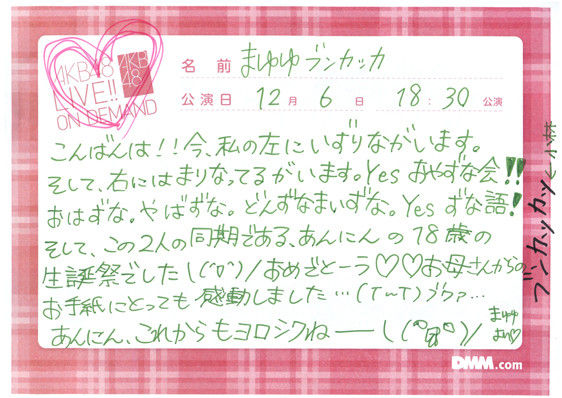 AKB48
LIVE!!
ON DEMAND
AKB
48
名 前 まゆゆ ブンカッカ
公演日 12 月 6 日 18:30 公演
こんばんは!!今、私の左にいずりながいます。
そして、右にはまりなってるがいます。Yes おやずな会!!
おはずな。やばずな。どんずなまいずな。Yes ずな語!
そして、この2人の同期である、あんにんの18歳の
生誕祭でした\(^o^)/おめでとーう♡♡お母さんからの
お手紙にとっても感動しました…(T~T)ブワァ…
あんにん、これからもヨロシクね――\(^o^)/
まゆゆ
より♡
ブンカッカッ←小林
DMM.com